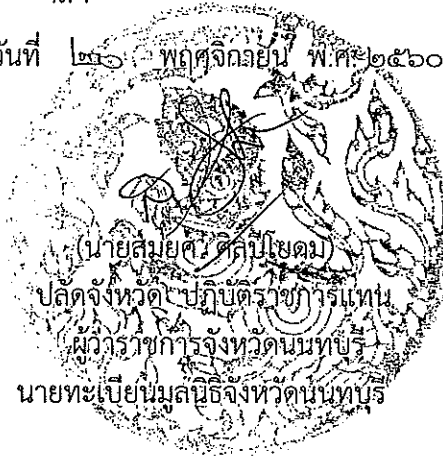 วันที่ ๒๑ พฤศจิกายน พ.ศ. ๒๕๖๐
(นายสมยศ ศิลปีโยดม)
ปลัดจังหวัด ปฏิบัติราชการแทน
ผู้ว่าราชการจังหวัดนนทบุรี
นายทะเบียนมูลนิธิจังหวัดนนทบุรี